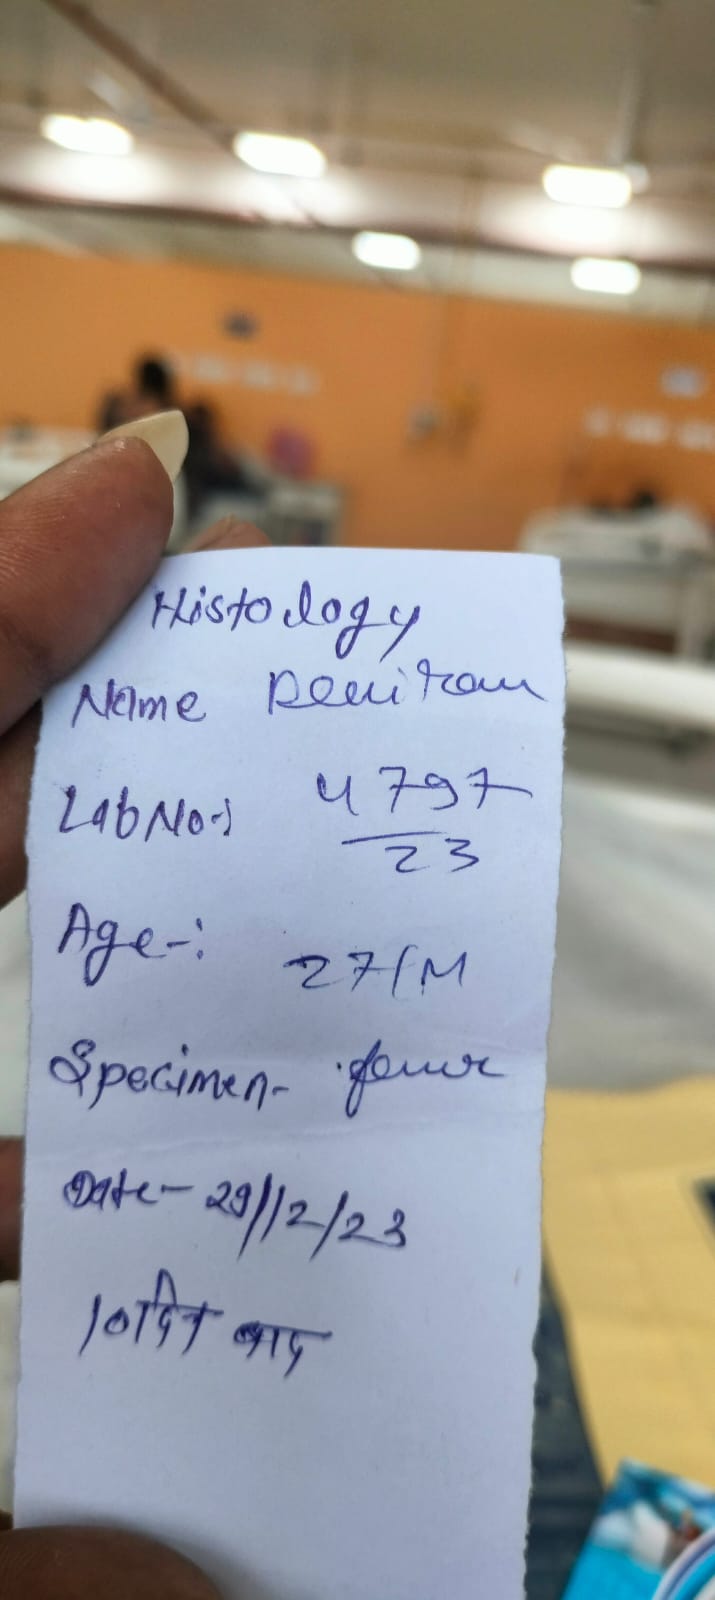 Histology
Name Deviram
Lab No-: 4797
23
Age-: 27/M
Specimen- femur
Date- 29/12/23
10 दिन बाद